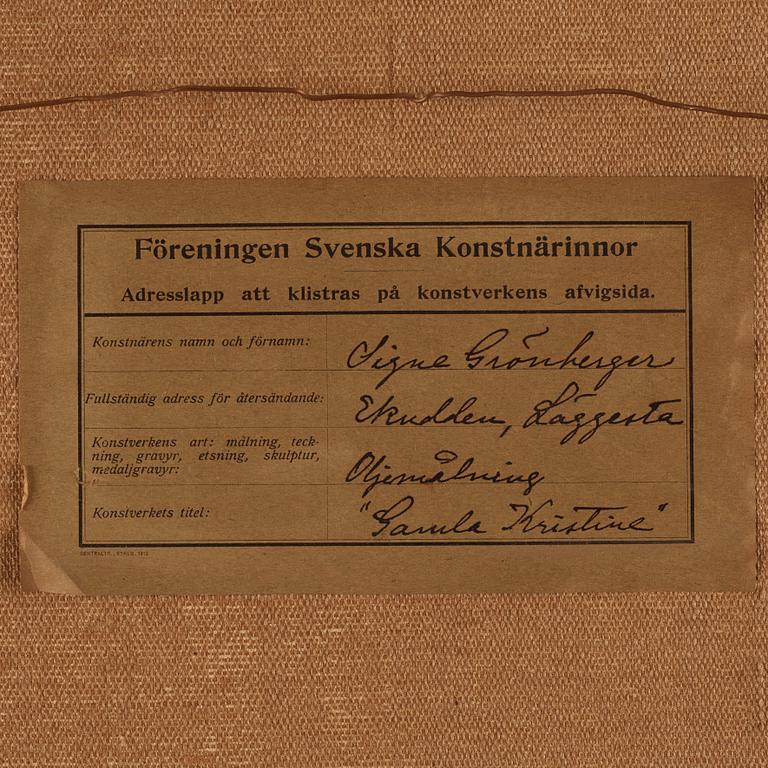 Föreningen Svenska Konstnärinnor
Adresslapp att klistras på konstverkens afvigsida.
Konstnärens namn och förnamn: Signe Grönberger
Fullständig adress för återsändande: Ekudden, Läggesta
Konstverkens art: målning, teck-
ning, gravyr, etsning, skulptur,
medaljgravyr: Oljemålning
Konstverkets titel: "Gamla Kristine"
CENTRALTR., STHLM. 1912